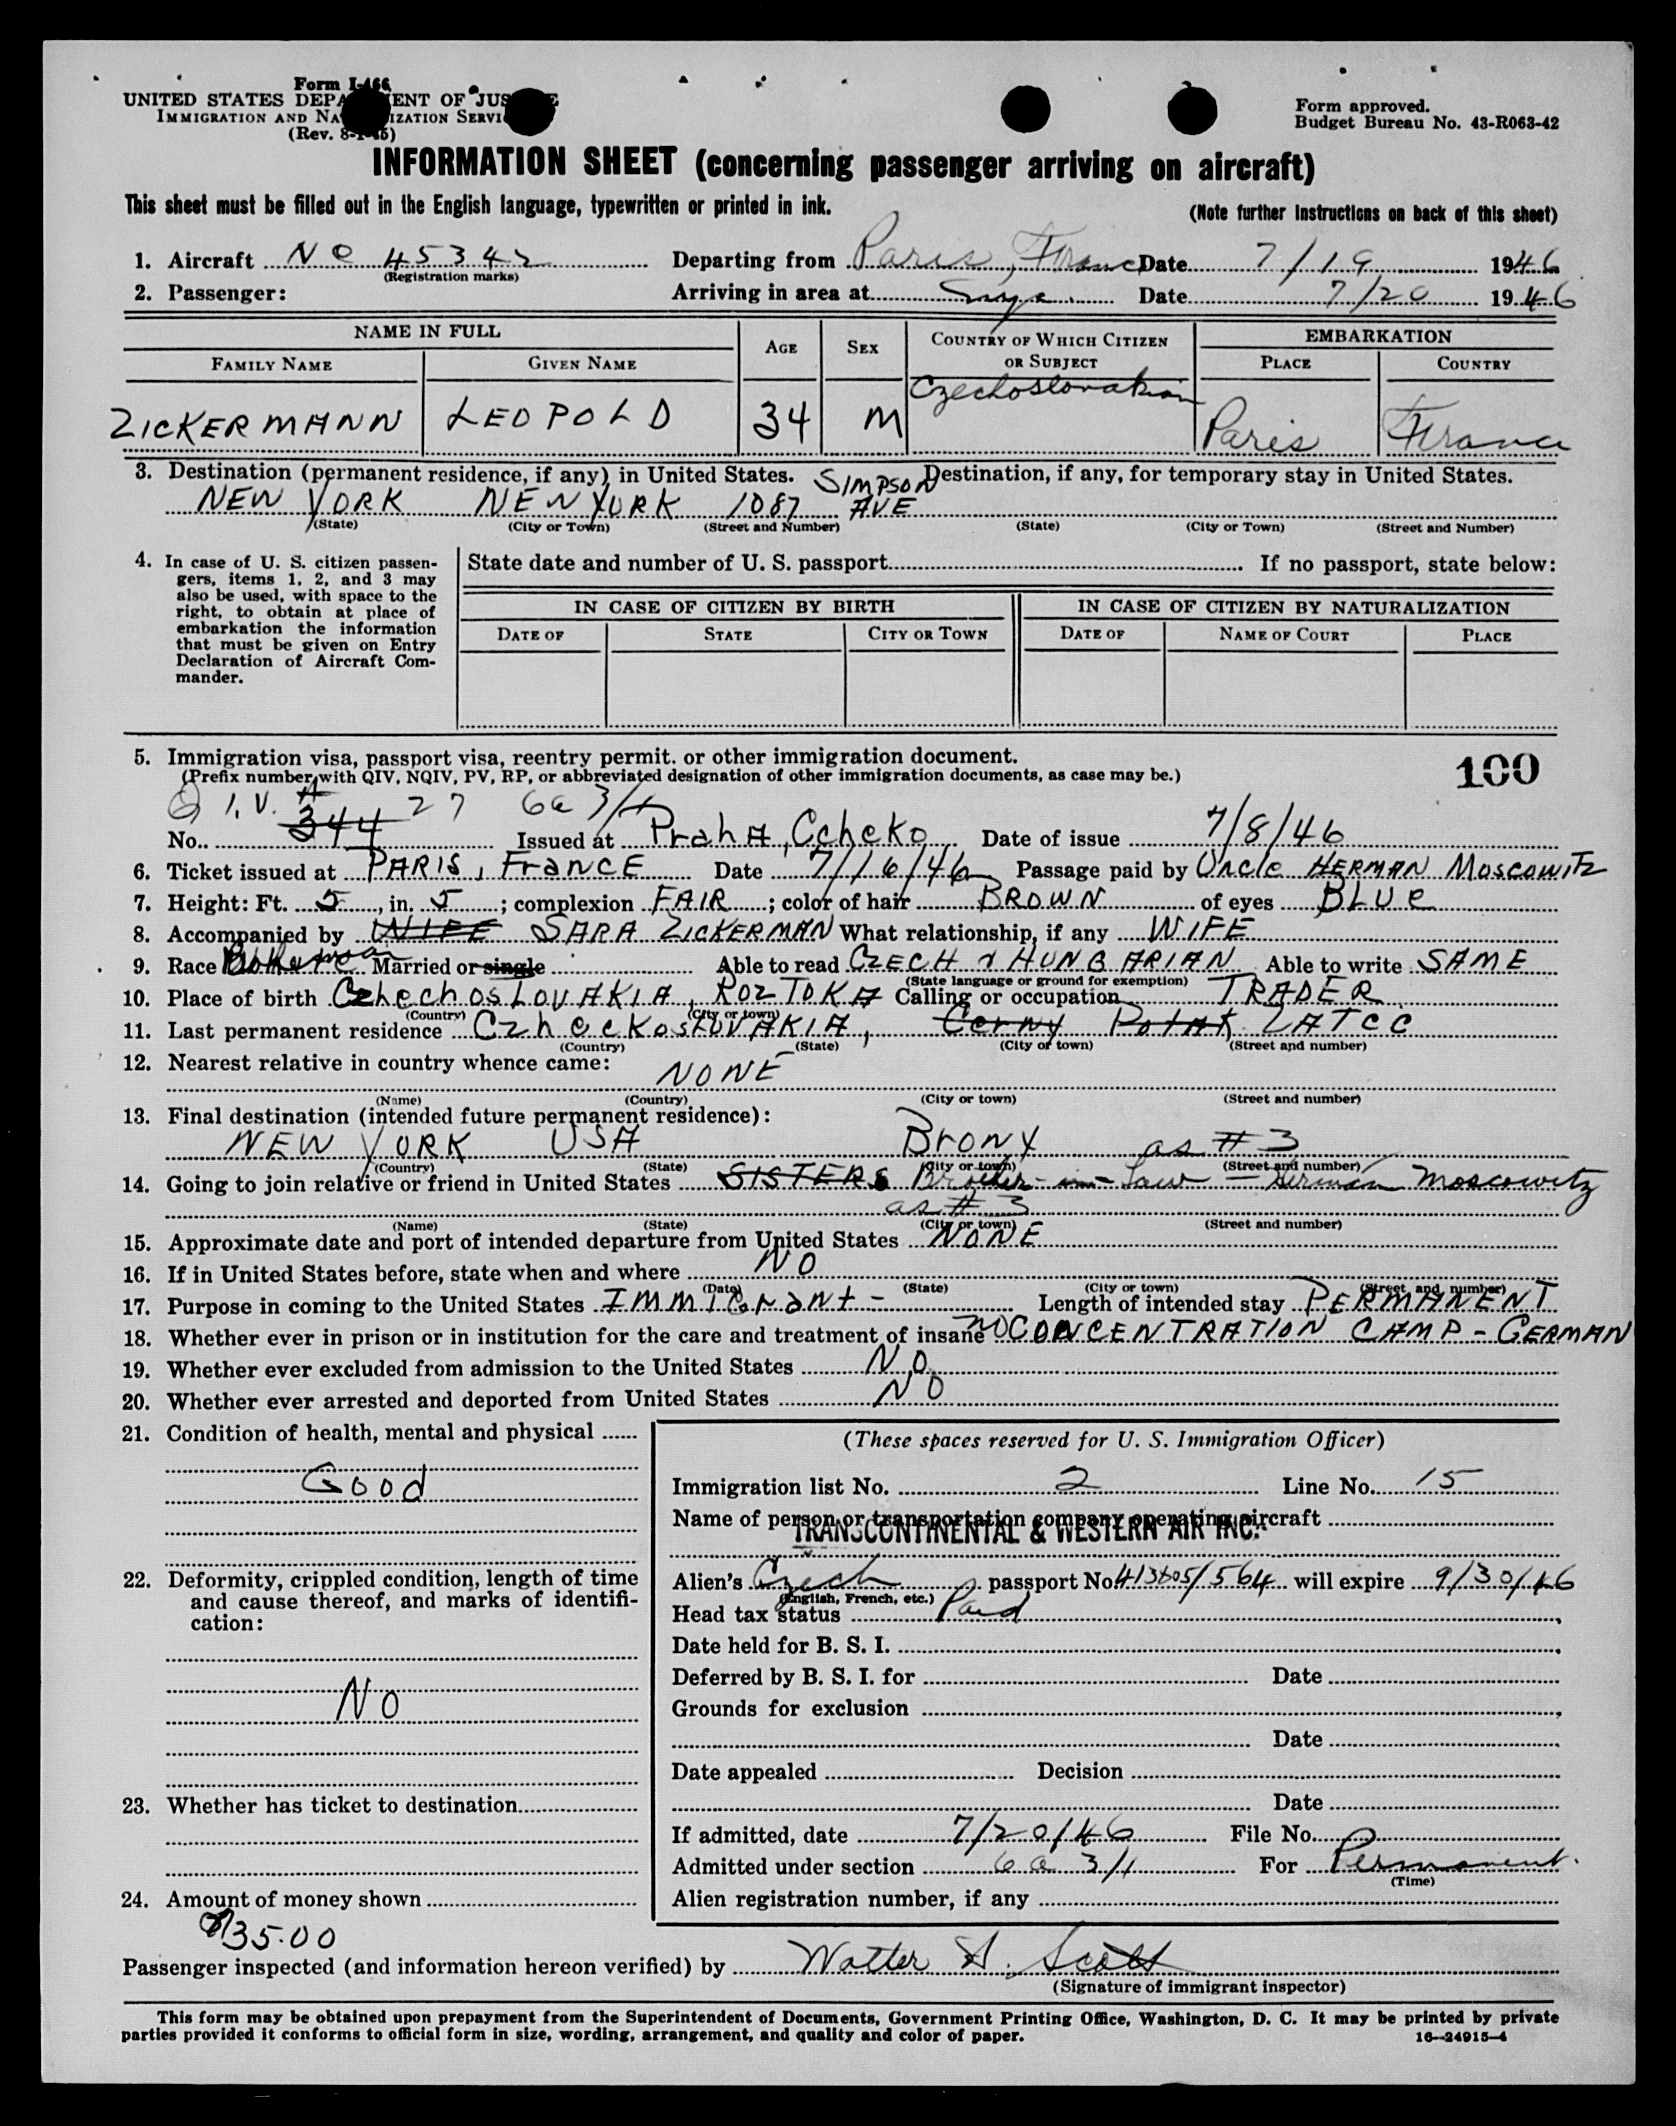 Form I-466
UNITED STATES DEPARTMENT OF JUSTICE
IMMIGRATION AND NATURALIZATION SERVICE
(Rev. 8-1-45)
Form approved.
Budget Bureau No. 43-R063-42
INFORMATION SHEET (concerning passenger arriving on aircraft)
This sheet must be filled out in the English language, typewritten or printed in ink.
(Note further instructions on back of this sheet)
1. Aircraft No 45342 Departing from Paris, France Date 7/19 1946
(Registration marks)
2. Passenger: Arriving in area at Date 7/20 1946
NAME IN FULL AGE SEX COUNTRY OF WHICH CITIZEN OR SUBJECT EMBARKATION
FAMILY NAME GIVEN NAME PLACE COUNTRY
ZICKERMANN LEOPOLD 34 M Czechoslovakian Paris France
3. Destination (permanent residence, if any) in United States. Destination, if any, for temporary stay in United States.
NEW YORK NEW YORK 1087 SIMPSON AVE
(State) (City or Town) (Street and Number) (State) (City or Town) (Street and Number)
4. In case of U. S. citizen passen-
gers, items 1, 2, and 3 may
also be used, with space to the
right, to obtain at place of
embarkation the information
that must be given on Entry
Declaration of Aircraft Com-
mander.
State date and number of U. S. passport If no passport, state below:
IN CASE OF CITIZEN BY BIRTH IN CASE OF CITIZEN BY NATURALIZATION
DATE OF STATE CITY OR TOWN DATE OF NAME OF COURT PLACE
5. Immigration visa, passport visa, reentry permit. or other immigration document.
(Prefix number with QIV, NQIV, PV, RP, or abbreviated designation of other immigration documents, as case may be.)
100
Q I.V. # 27 6a 3/1
No. 344 Issued at PrahA, Ccheko Date of issue 7/8/46
6. Ticket issued at PARIS, FrANCE Date 7/16/46 Passage paid by Uncle HERMAN MoscowiTz
7. Height: Ft. 5, in. 5; complexion FAIR; color of hair BROWN of eyes BLUe
8. Accompanied by WIFE SARA ZICKERMAN What relationship, if any WIFE
9. Race Married or single Able to read CZECH & HUNGARIAN Able to write SAME
(State language or ground for exemption)
10. Place of birth CzhechosLovAKIA, ROZTOKA Calling or occupation TRADER
(Country) (City or town)
11. Last permanent residence CzheckoslovAKIA, Cerny Potok ZATCC
(Country) (State) (City or town) (Street and number)
12. Nearest relative in country whence came: NONE
(Name) (Country) (City or town) (Street and number)
13. Final destination (intended future permanent residence):
NEW YORK USA Bronx as #3
(Country) (State) (City or town) (Street and number)
14. Going to join relative or friend in United States SISTERS Brother-in-Law - Herman Moscowitz
as #3
(Name) (State) (City or town) (Street and number)
15. Approximate date and port of intended departure from United States NONE
16. If in United States before, state when and where NO
(Date) (State) (City or town) (Street and number)
17. Purpose in coming to the United States IMMIGrant - Length of intended stay PERMANENT
18. Whether ever in prison or in institution for the care and treatment of insane no CONCENTRATION CAMP - GERMAN
19. Whether ever excluded from admission to the United States NO
20. Whether ever arrested and deported from United States NO
21. Condition of health, mental and physical
Good
22. Deformity, crippled condition, length of time
and cause thereof, and marks of identifi-
cation:
NO
23. Whether has ticket to destination
24. Amount of money shown
$35.00
(These spaces reserved for U. S. Immigration Officer)
Immigration list No. 2 Line No. 15
Name of person or transportation company operating aircraft
TRANSCONTINENTAL & WESTERN AIR INC.
Alien's Czech passport No. 413605/564 will expire 9/30/46
(English, French, etc.)
Head tax status Paid
Date held for B. S. I.
Deferred by B. S. I. for Date
Grounds for exclusion
Date
Date appealed Decision
Date
If admitted, date 7/20/46 File No.
Admitted under section 6a 3/1 For Permanent.
(Time)
Alien registration number, if any
Passenger inspected (and information hereon verified) by Walter A. Scott
(Signature of immigrant inspector)
This form may be obtained upon prepayment from the Superintendent of Documents, Government Printing Office, Washington, D. C. It may be printed by private
parties provided it conforms to official form in size, wording, arrangement, and quality and color of paper.
16-24915-4